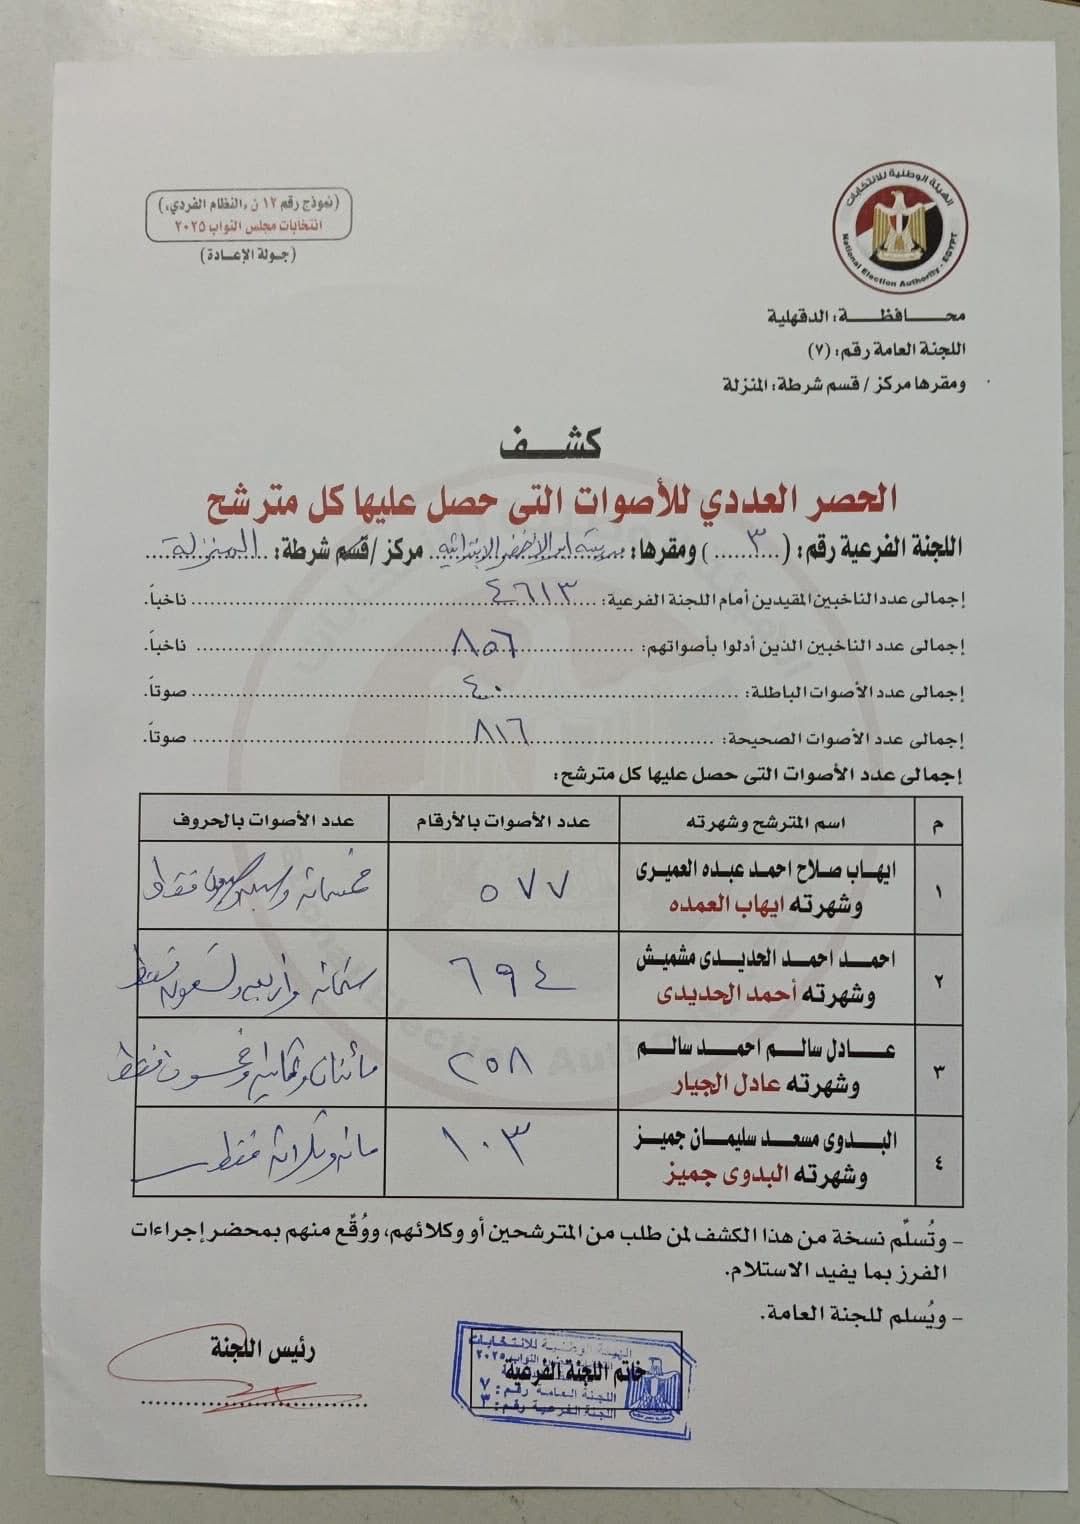 الهيئة الوطنية للانتخابات
National Election Authority - EGYPT
(نموذج رقم ١٢ ن «النظام الفردي»)
انتخابات مجلس النواب ٢٠٢٥
(جولة الإعادة)
محافظة: الدقهلية
اللجنة العامة رقم: (٧)
ومقرها مركز / قسم شرطة: المنزلة
كشف
الحصر العددي للأصوات التى حصل عليها كل مترشح
اللجنة الفرعية رقم: (...٣...) ومقرها: مدرسة ابو الأخضر الابتدائية مركز /قسم شرطة: المنزلة
إجمالى عدد الناخبين المقيدين أمام اللجنة الفرعية: ٤٦١٣ ناخباً.
إجمالى عدد الناخبين الذين أدلوا بأصواتهم: ٨٥٦ ناخباً.
إجمالى عدد الأصوات الباطلة: ٤٠ صوتاً.
إجمالى عدد الأصوات الصحيحة: ٨١٦ صوتاً.
إجمالى عدد الأصوات التى حصل عليها كل مترشح:
م اسم المترشح وشهرته عدد الأصوات بالأرقام عدد الأصوات بالحروف
١ ايهاب صلاح احمد عبده العميرى ٥٧٧ خمسمائة وسبعة وسبعون فقط
وشهرته ايهاب العمده
٢ احمد احمد الحديدى مشميش ٦٩٤ ستمائة واربعة وتسعون فقط
وشهرته أحمد الحديدى
٣ عادل سالم احمد سالم ٢٥٨ مائتان وثمانية وخمسون فقط
وشهرته عادل الجيار
٤ البدوى مسعد سليمان جميز ١٠٣ مائة وثلاثة فقط
وشهرته البدوى جميز
- وتُسلَّم نسخة من هذا الكشف لمن طلب من المترشحين أو وكلائهم، ووُقِّع منهم بمحضر إجراءات
الفرز بما يفيد الاستلام.
- ويُسلم للجنة العامة.
رئيس اللجنة
خاتم اللجنة الفرعية
الهيئة الوطنية للانتخابات
النواب ٢٠٢٥
اللجنة العامة رقم: ٧
اللجنة الفرعية رقم: ٣